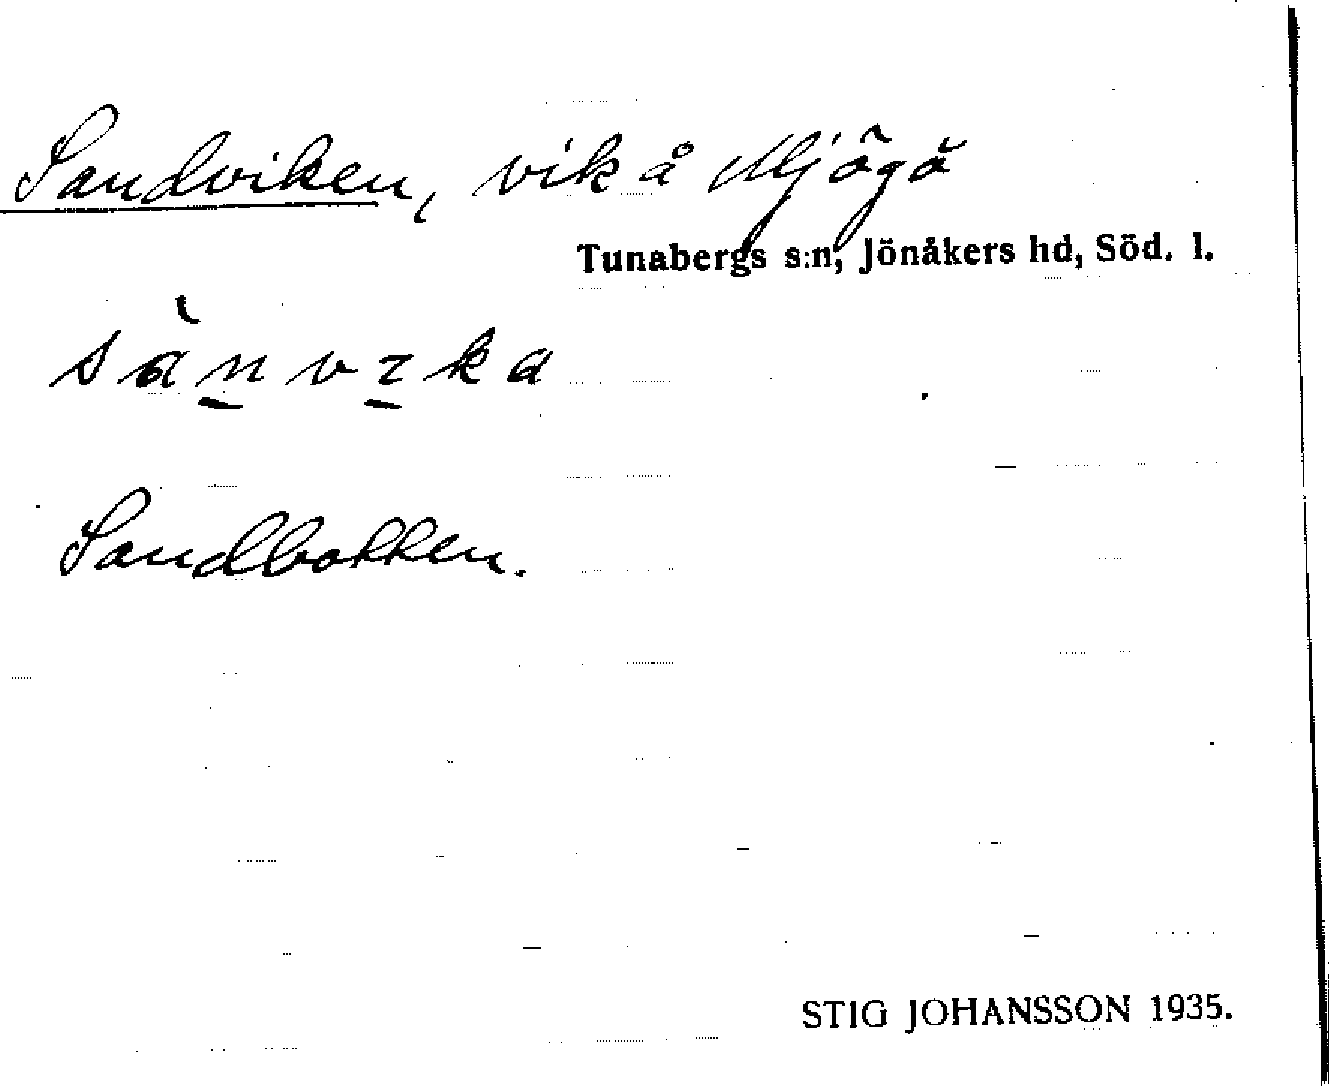 Sandviken, vik å Mjögö
Tunabergs s:n, Jönåkers hd, Söd. l.
sànvɩka
Sandbotten.
STIG JOHANSSON 1935.